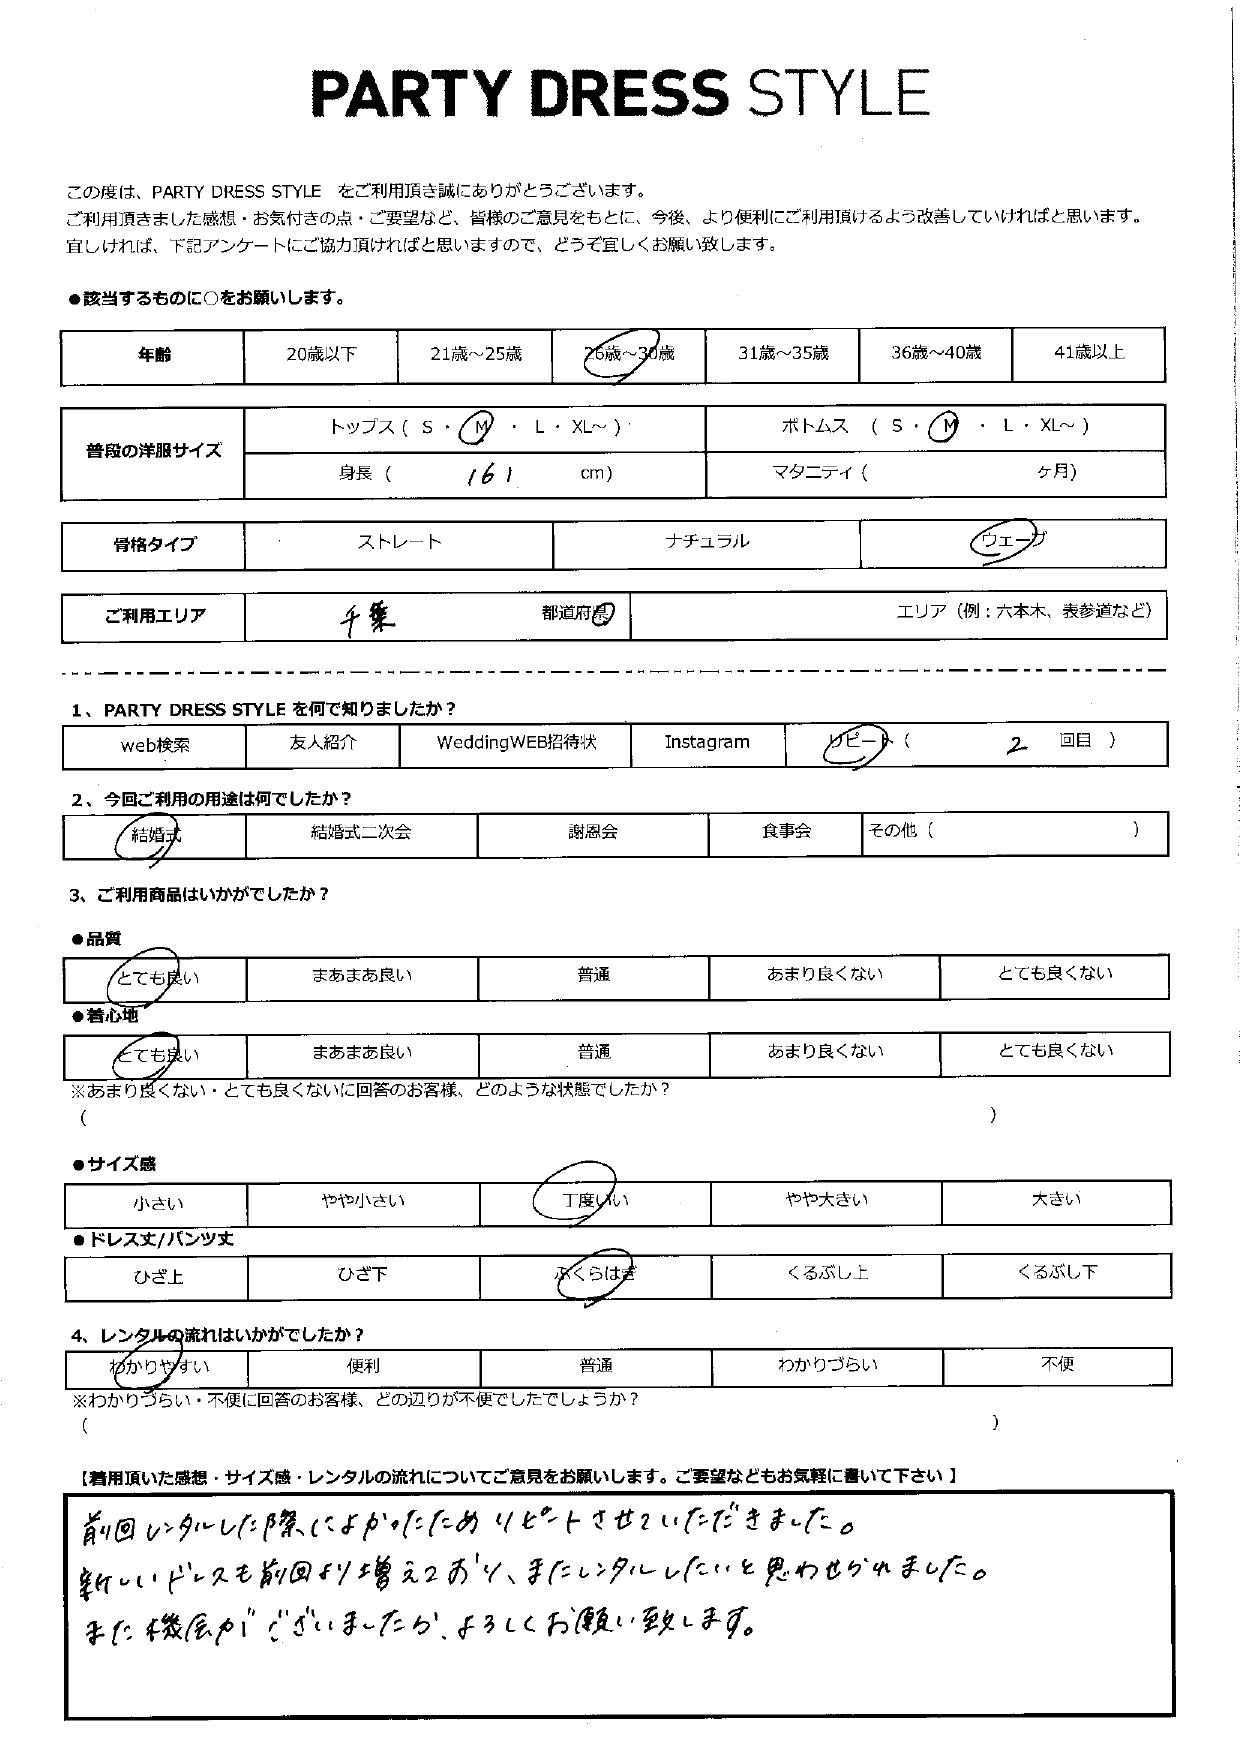 PARTY DRESS STYLE
この度は、PARTY DRESS STYLE　をご利用頂き誠にありがとうございます。
ご利用頂きました感想・お気付きの点・ご要望など、皆様のご意見をもとに、今後、より便利にご利用頂けるよう改善していければと思います。
宜しければ、下記アンケートにご協力頂ければと思いますので、どうぞ宜しくお願い致します。
●該当するものに○をお願いします。
年齢 20歳以下 21歳～25歳 26歳～30歳 31歳～35歳 36歳～40歳 41歳以上
普段の洋服サイズ
トップス ( S ・ M ・ L ・ XL～ ) ボトムス ( S ・ M ・ L ・ XL～ )
身長 ( 161 cm) マタニティ ( ヶ月)
骨格タイプ ストレート ナチュラル ウェーブ
ご利用エリア 千葉 都道府県 エリア（例：六本木、表参道など）
1、PARTY DRESS STYLE を何で知りましたか？
web検索 友人紹介 WeddingWEB招待状 Instagram リピート ( 2 回目 )
2、今回ご利用の用途は何でしたか？
結婚式 結婚式二次会 謝恩会 食事会 その他 ( )
3、ご利用商品はいかがでしたか？
●品質
とても良い まあまあ良い 普通 あまり良くない とても良くない
●着心地
とても良い まあまあ良い 普通 あまり良くない とても良くない
※あまり良くない・とても良くないに回答のお客様、どのような状態でしたか？
( )
●サイズ感
小さい やや小さい 丁度いい やや大きい 大きい
●ドレス丈/パンツ丈
ひざ上 ひざ下 ふくらはぎ くるぶし上 くるぶし下
4、レンタルの流れはいかがでしたか？
わかりやすい 便利 普通 わかりづらい 不便
※わかりづらい・不便に回答のお客様、どの辺りが不便でしたでしょうか？
( )
【着用頂いた感想・サイズ感・レンタルの流れについてご意見をお願いします。ご要望などもお気軽に書いて下さい】
前回レンタルした際によかったためリピートさせていただきました。
新しいドレスも前回より増えており、またレンタルしたいと思わせられました。
また機会がございましたら、よろしくお願い致します。